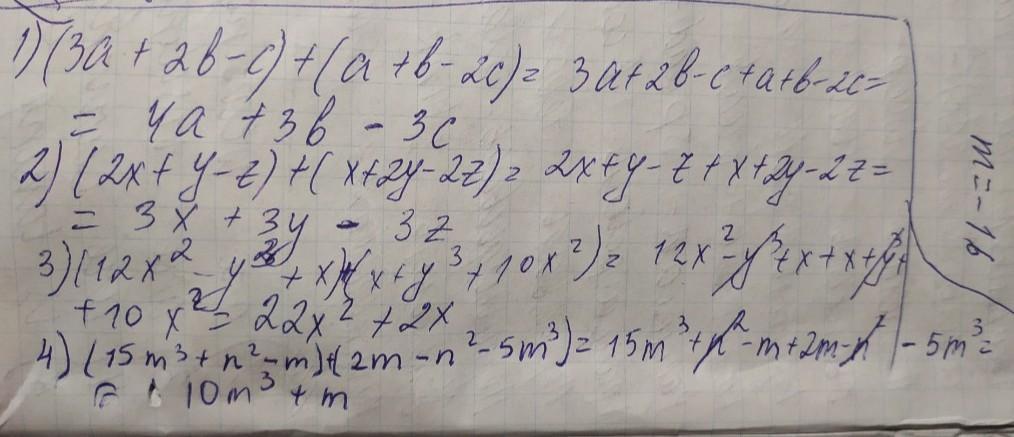 1) (3a + 2b - c) + (a + b - 2c) = 3a + 2b - c + a + b - 2c =
= 4a + 3b - 3c
2) (2x + y - z) + (x + 2y - 2z) = 2x + y - z + x + 2y - 2z =
= 3x + 3y - 3z
3) (12x² - y³ + x) + (x + y³ + 10x²) = 12x² - y³ + x + x + y³ +
+ 10x² = 22x² + 2x
4) (15m³ + n² - m) + (2m - n² - 5m³) = 15m³ + n² - m + 2m - n² - 5m³ =
= 10m³ + m
m = -16